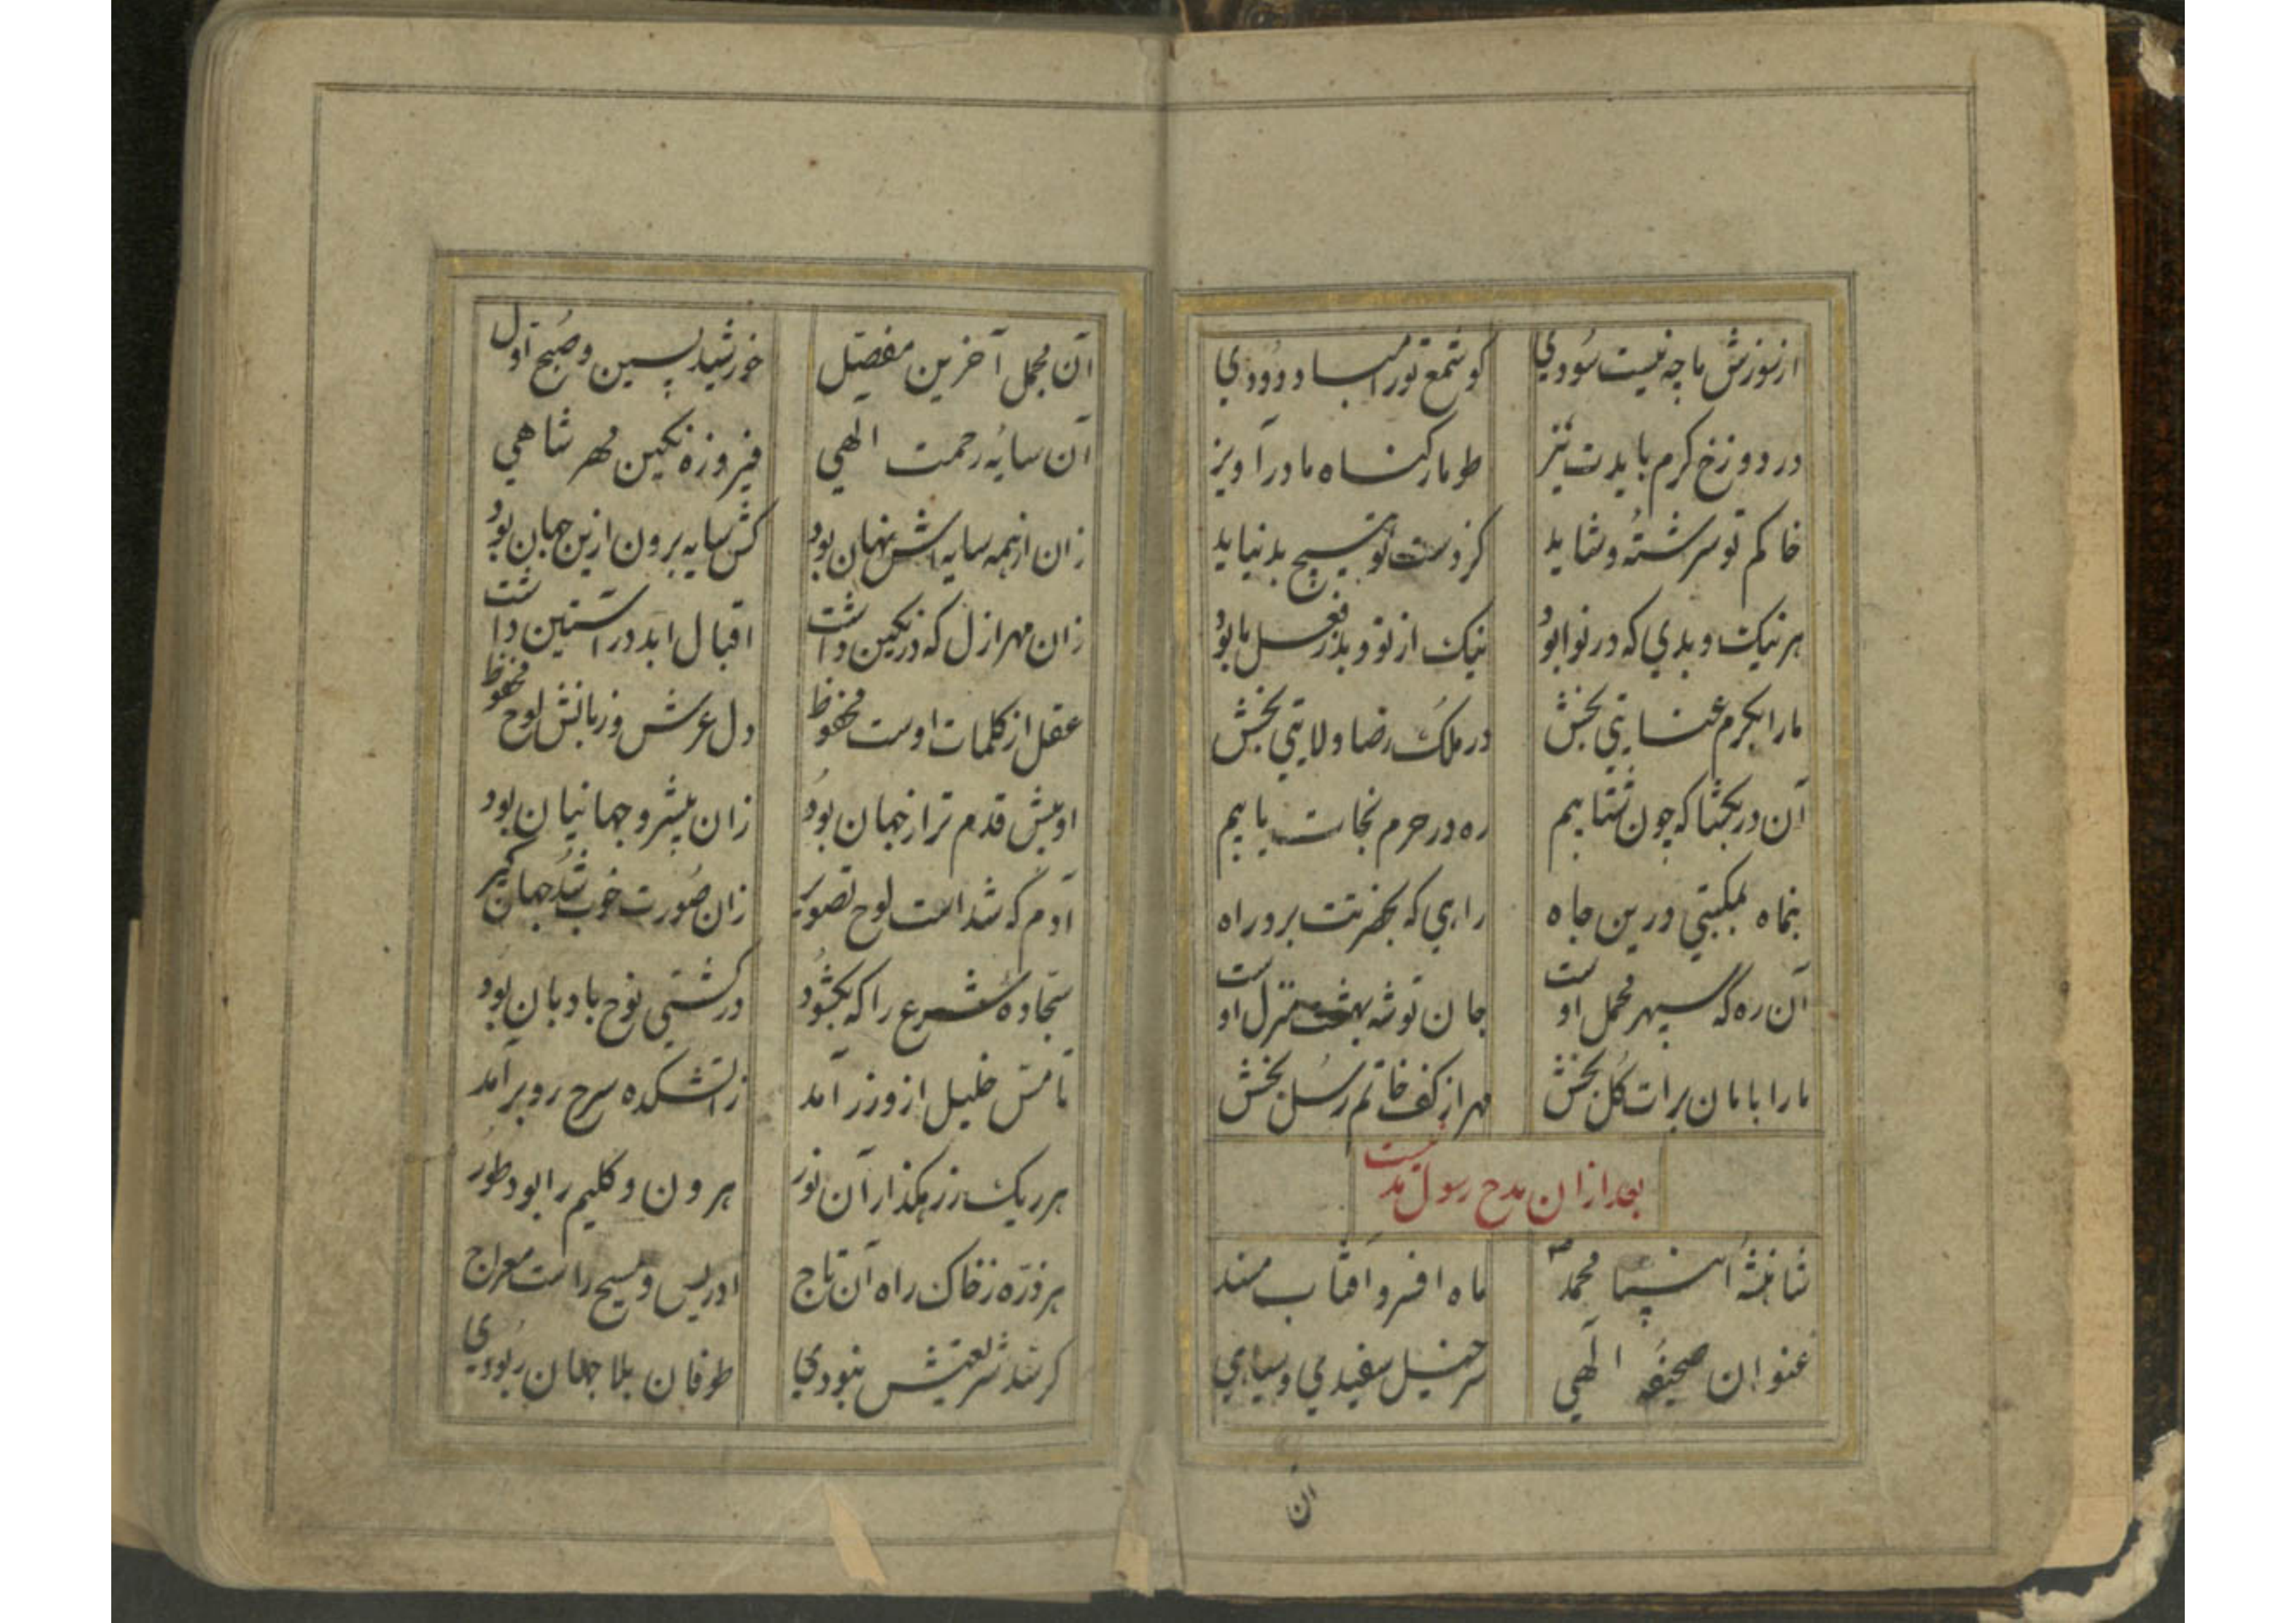 از سوزش ما چه نیست سودی کو شمع تو را مباد دودی
در دوزخ کرم بایدت تیز طومار کناه ما در آویز
خاکم تو سرشته و شاید کز دست تو هیچ بد نیاید
هر نیک و بدی که در نوا بود نیک از تو و بد ز فعل ما بود
ما را بکرم عنایتی بخش در ملک رضا ولایتی بخش
آن در بکشا که چون شتابیم ره در حرم نجات یابیم
بنماه بمکبتی درین جاه راهی که بحضرتت برد راه
آن ره که سپهر محمل اوست جان توشه بهشت منزل اوست
ما را بامان برات کل بخش مهر از کف خاتم رسل بخش
بعد ازان مدح رسول مدنیست
شاهنشه انبیا محمد ص ماه افسر و آفتاب مسند
عنوان صحیفه الهی سرخیل سفیدی و سیاهی
ان
آن مجمل آخرین مفصل خورشید پسین و صبح اول
آن سایه رحمت الهی فیروزه نکین مهر شاهی
زان از همه سایه اش نهان بود کش سایه برون ازین جهان بود
زان مهر ازل که در نکین داشت اقبال ابد در آستین داشت
عقل از کلمات اوست محفوظ دل عرش و زبانش لوح محفوظ
او پیش قدم تر از جهان بود زان پیشرو جهانیان بود
آدم که شد است لوح تصویر زان صورت خوب شد جهان کیر
سجاده شرع را که بکشود در کشتی نوح بادبان بود
تا مس خلیل ازو زر آمد ز آتشکده سرخ رو بر آمد
هر ریک ز رهکذار آن نور هرون و کلیم را بود طور
هر ذره ز خاک راه آن تاج ادریس و مسیح راست معراج
کر سد شریعتش نبودی طوفان بلا جهان ربودی